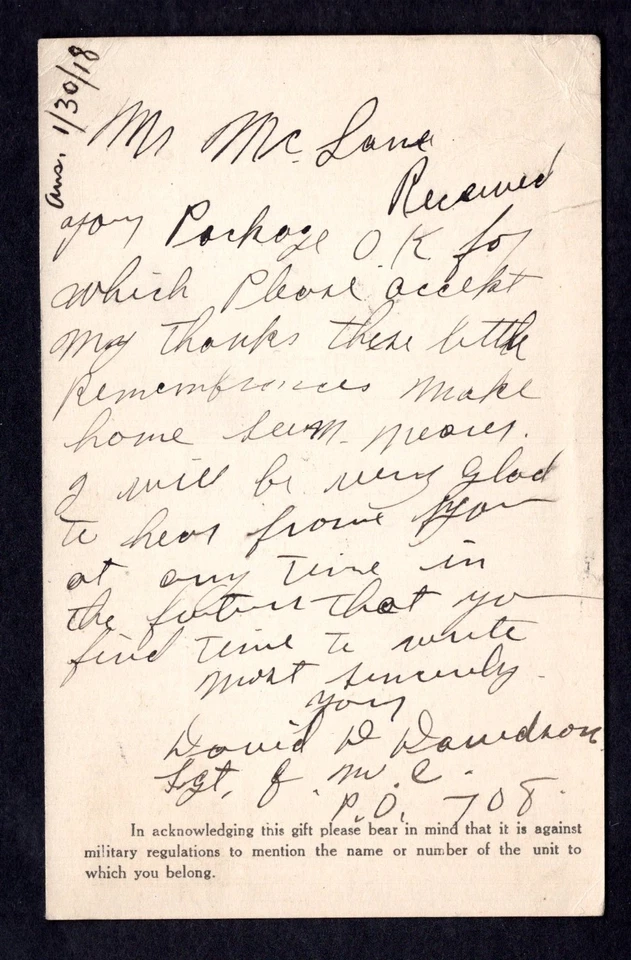 Ans. 1/30/18
Mr Mc Lane
Received
your Package O.K. for
which Please accept
my thanks these little
Remembrances make
home seem nearer.
I will be very glad
to hear from you
at any time in
the future that you
find time to write
Most sincerely
yours
David D Davidson
Sgt. Q. M. C.
P.O. 708.
In acknowledging this gift please bear in mind that it is against
military regulations to mention the name or number of the unit to
which you belong.